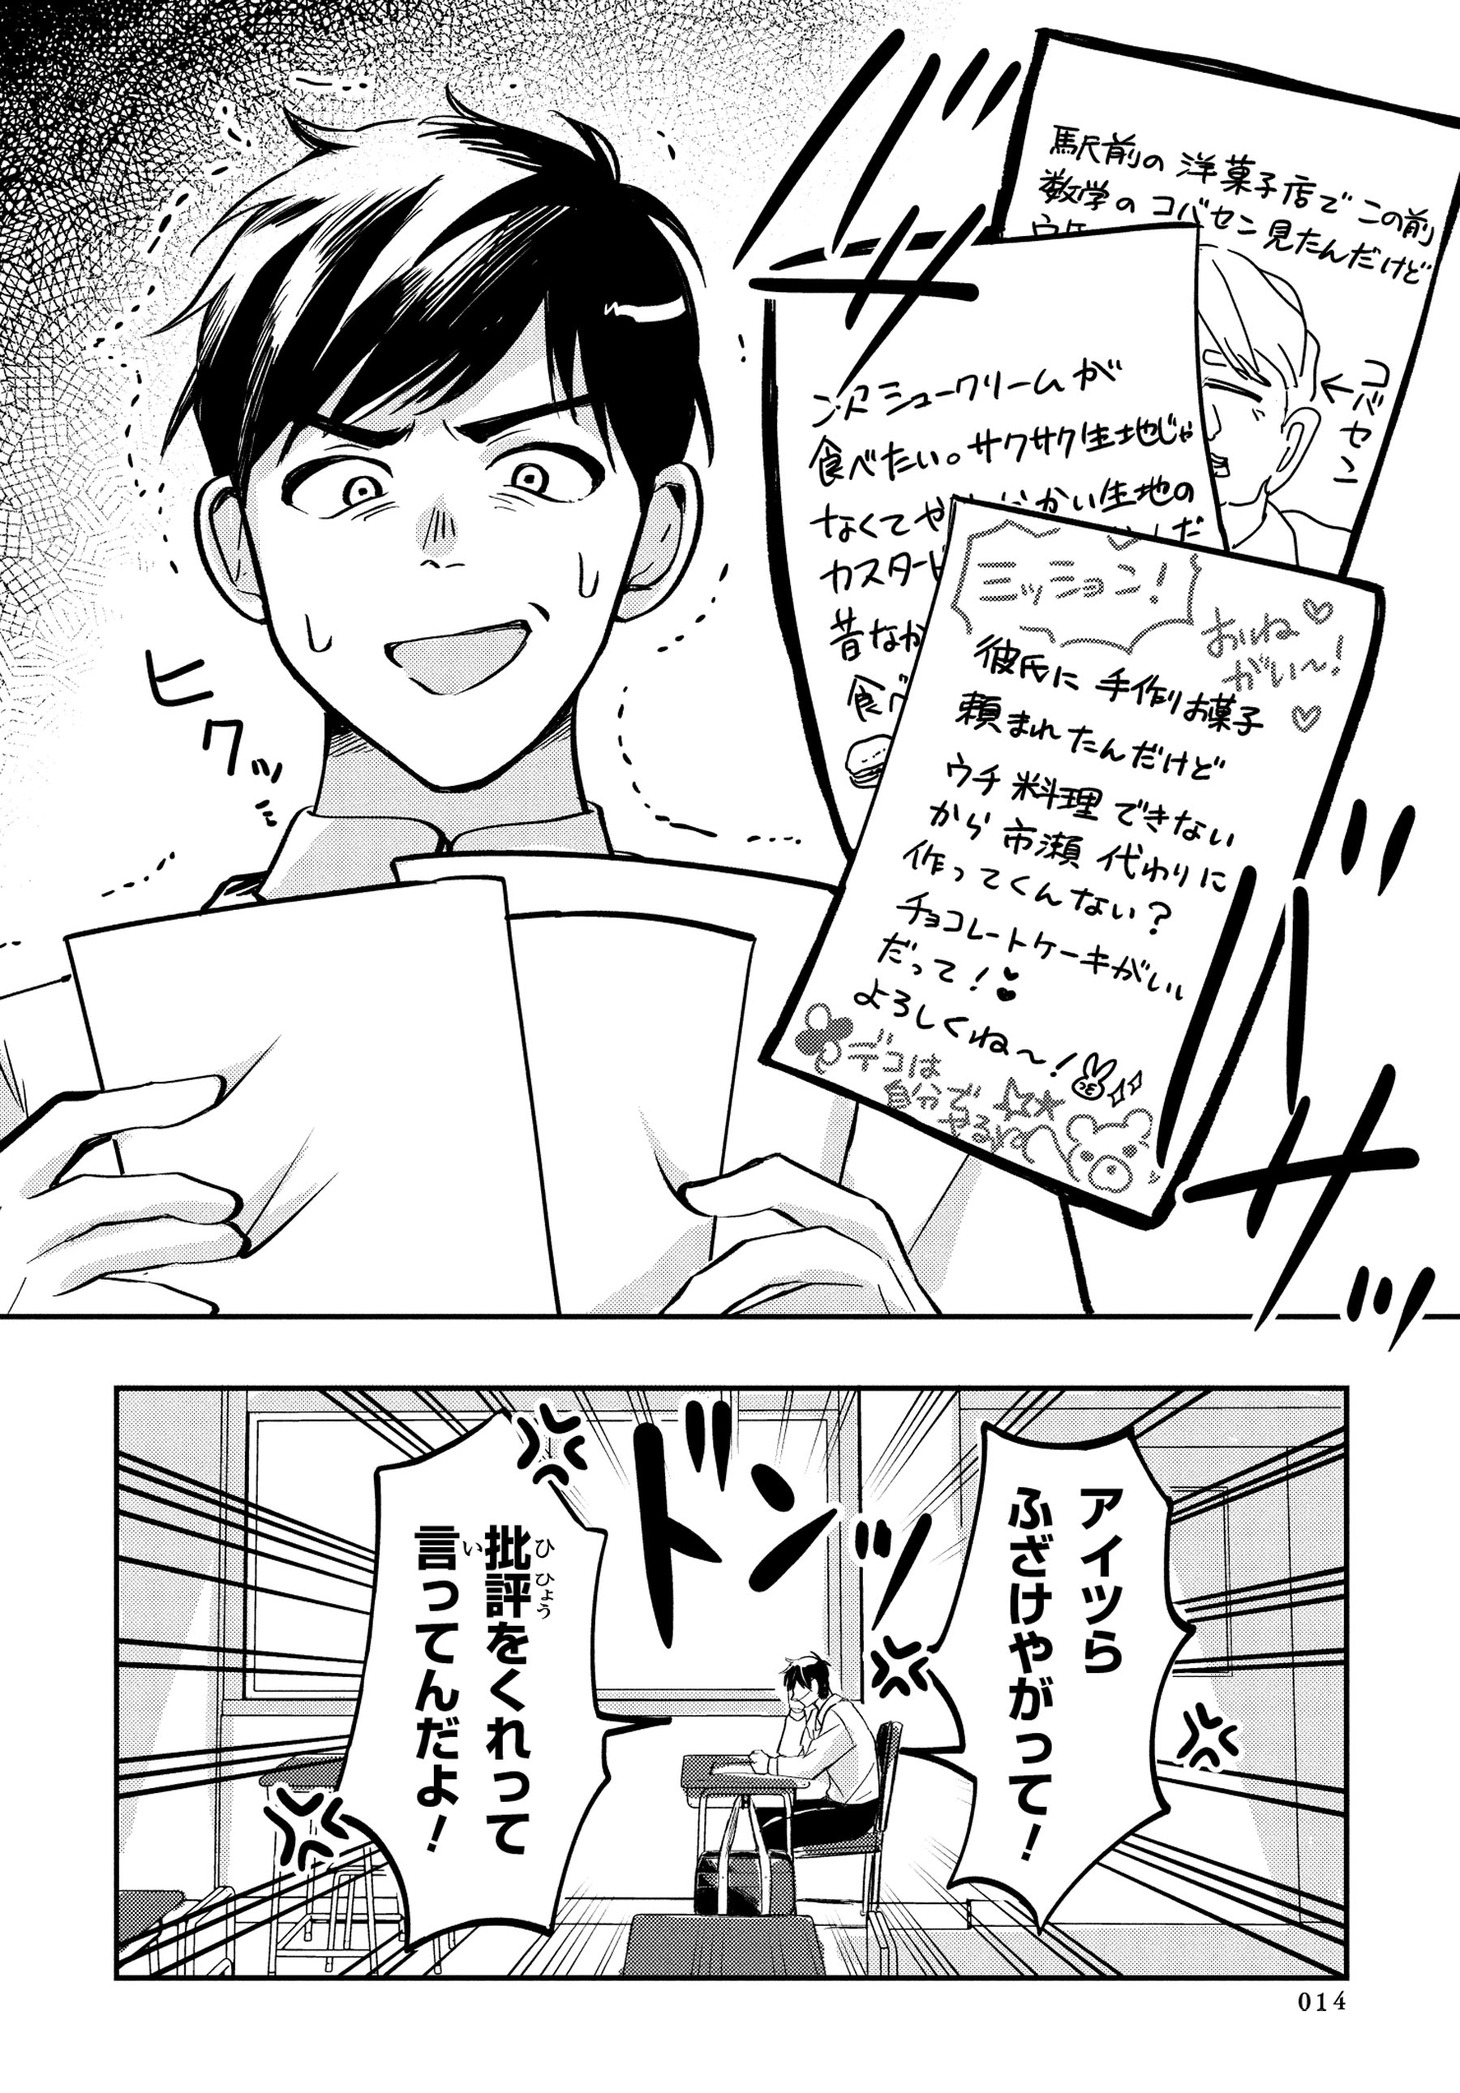 駅前の洋菓子店でこの前
数学のコバセン見たんだけど
ウケ
←コバセン
次シュークリームが
食べたい。サクサク生地じゃ
なくてや
かい生地の
カスタード
昔なか
食べ
ミッション!
おねがい〜!
彼氏に手作りお菓子
頼まれたんだけど
ウチ料理できない
から市瀬代わりに
作ってくんない?
チョコレートケーキがいい
だって!
よろしくね〜!
デコは
自分で
やるね
ズザッ
ズザッ
ヒクッ
アイツら
ふざけやがって!
ドンッ
批評をくれって
ひひょう
言ってんだよ!
い
014